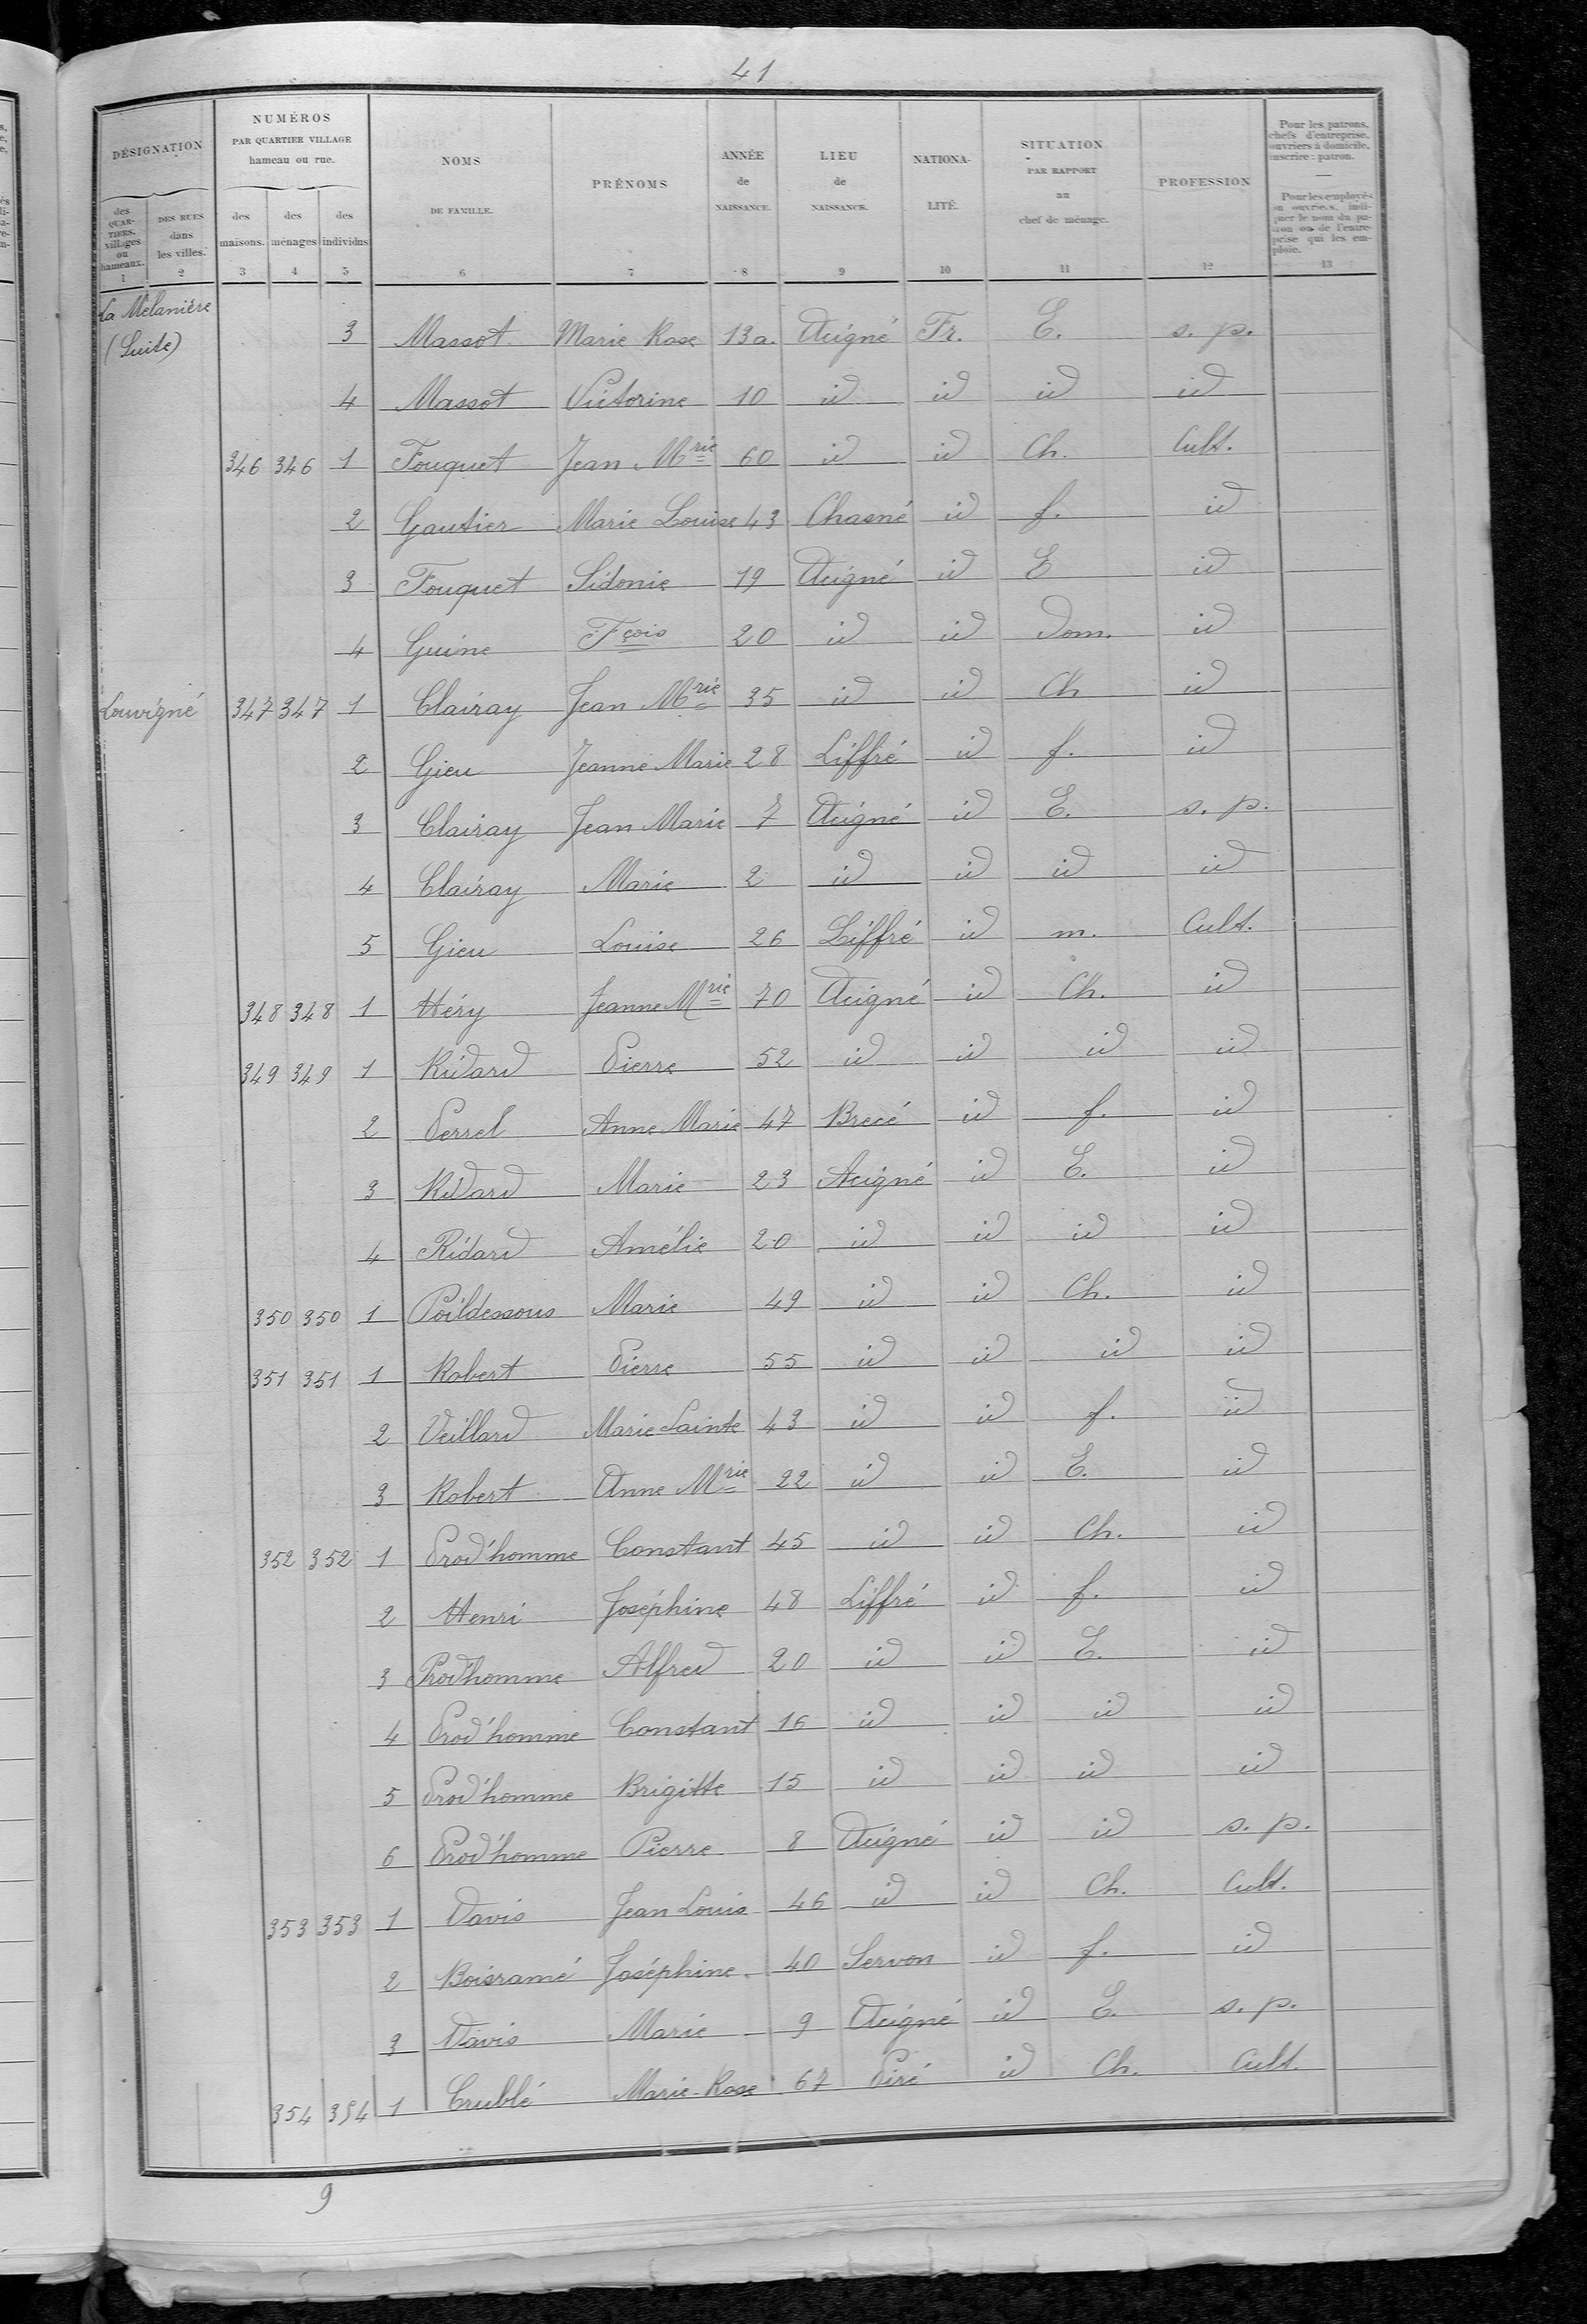 41
DÉSIGNATION
NUMÉROS
PAR QUARTIER VILLAGE
hameau ou rue.
des QUARTIERS, villages ou hameaux. DES RUES dans les villes. des maisons. des ménages des individus NOMS DE FAMILLE. PRÉNOMS ANNÉE de NAISSANCE. LIEU de NAISSANCE. NATIONALITÉ. SITUATION PAR RAPPORT au chef de ménage. PROFESSION
Pour les patrons, chefs d'entreprise, ouvriers à domicile, inscrire : patron.
Pour les employés ou ouvriers, indiquer le nom du patron ou de l'entreprise qui les emploie.
1 2 3 4 5 6 7 8 9 10 11 12 13
La Mélanière
(Suite) 3 Massot Marie Rose 13 a. Acigné Fr. E. s. p.
4 Massot Victorine 10 id id id id
346 346 1 Fouquet Jean Mrie 60 id id Ch. Cult.
2 Gautier Marie Louise 43 Chasné id f. id
3 Fouquet Sidonie 19 Acigné id E id
4 Guine Fçois 20 id id Dom. id
Louvigné 347 347 1 Clairay Jean Mrie 35 id id Ch id
2 Gieu Jeanne Marie 28 Liffré id f. id
3 Clairay Jean Marie 7 Acigné id E. s. p.
4 Clairay Marie 2 id id id id
5 Gieu Louise 26 Liffré id m. Cult.
348 348 1 Héry Jeanne Mrie 70 Acigné id Ch. id
349 349 1 Ridard Pierre 52 id id id id
2 Perrel Anne Marie 47 Brecé id f. id
3 Ridard Marie 23 Acigné id E. id
4 Ridard Amélie 20 id id id id
350 350 1 Poildessous Marie 49 id id Ch. id
351 351 1 Robert Pierre 55 id id id id
2 Veillard Marie Sainte 43 id id f. id
3 Robert Anne Mrie 22 id id E. id
352 352 1 Prod'homme Constant 45 id id Ch. id
2 Henri Joséphine 48 Liffré id f. id
3 Prod'homme Alfred 20 id id E. id
4 Prod'homme Constant 16 id id id id
5 Prod'homme Brigitte 15 id id id id
6 Prod'homme Pierre 8 Acigné id id s. p.
353 353 1 Davis Jean Louis 46 id id Ch. Cult.
2 Boisramé Joséphine 40 Servon id f. id
3 Davis Marie 9 Acigné id E. s. p.
354 354 1 Crublé Marie-Rose 67 Piré id Ch. Cult.
9